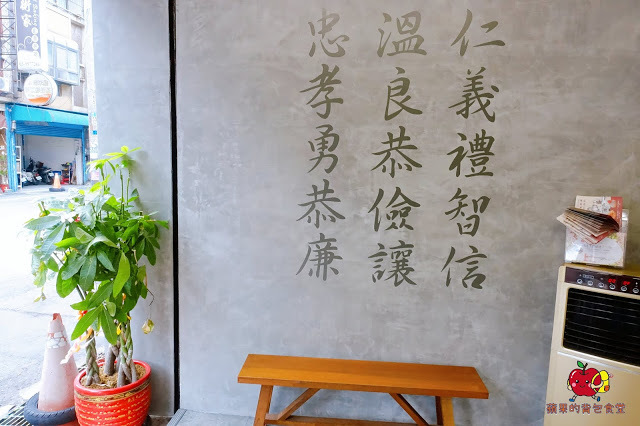 仁義禮智信
溫良恭儉讓
忠孝勇恭廉
蘋果的背包食堂